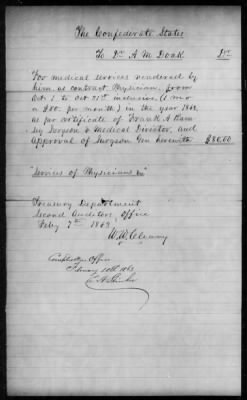 The Confederate States
To Dr A M Doak Dr
For medical services rendered by
him as contract Physician, from
Oct 1 to Oct 31st inclusive (1 mo
a $80. per month) in the year 1862,
as per certificate of Frank A Ram
sey Surgeon & Medical Director, and
Approval of Surgeon Gen herewith $80.00
"Services of Physicians &c"
Treasury Department
Second Auditors Office
Feby 7th 1863
W. W.
Comptroller Office
February 10th 1863